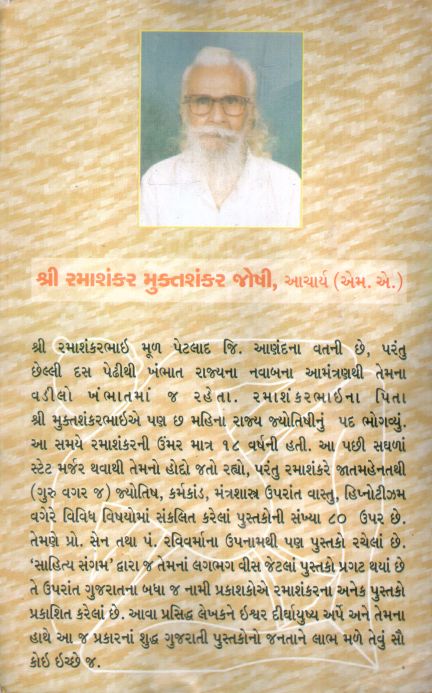 શ્રી રમાશંકર મુક્તશંકર જોષી, આચાર્ય (એમ. એ.)
શ્રી રમાશંકરભાઇ મૂળ પેટલાદ જિ. આણંદના વતની છે, પરંતુ
છેલ્લી દસ પેઢીથી ખંભાત રાજ્યના નવાબના આમંત્રણથી તેમના
વડીલો ખંભાતમાં જ રહેતા. રમાશંકરભાઈના પિતા
શ્રી મુક્તશંકરભાઈએ પણ છ મહિના રાજ્ય જ્યોતિષીનું પદ ભોગવ્યું.
આ સમયે રમાશંકરની ઉંમર માત્ર ૧૮ વર્ષની હતી. આ પછી સઘળાં
સ્ટેટ મર્જર થવાથી તેમનો હોદ્દો જતો રહ્યો, પરંતુ રમાશંકરે જાતમહેનતથી
(ગુરુ વગર જ) જ્યોતિષ, કર્મકાંડ, મંત્રશાસ્ત્ર ઉપરાંત વાસ્તુ, હિપ્નોટીઝમ
વગેરે વિવિધ વિષયોમાં સંકલિત કરેલાં પુસ્તકોની સંખ્યા ૮૦ ઉપર છે.
તેમણે પ્રો. સેન તથા પં. રવિવર્માના ઉપનામથી પણ પુસ્તકો રચેલાં છે.
‘સાહિત્ય સંગમ’ દ્વારા જ તેમનાં લગભગ વીસ જેટલાં પુસ્તકો પ્રગટ થયાં છે
તે ઉપરાંત ગુજરાતના બધા જ નામી પ્રકાશકોએ રમાશંકરના અનેક પુસ્તકો
પ્રકાશિત કરેલાં છે. આવા પ્રસિદ્ધ લેખકને ઇશ્વર દીર્ઘાયુષ્ય અર્પે અને તેમના
હાથે આ જ પ્રકારનાં શુદ્ધ ગુજરાતી પુસ્તકોનો જનતાને લાભ મળે તેવું સૌ
કોઇ ઇચ્છે જ.